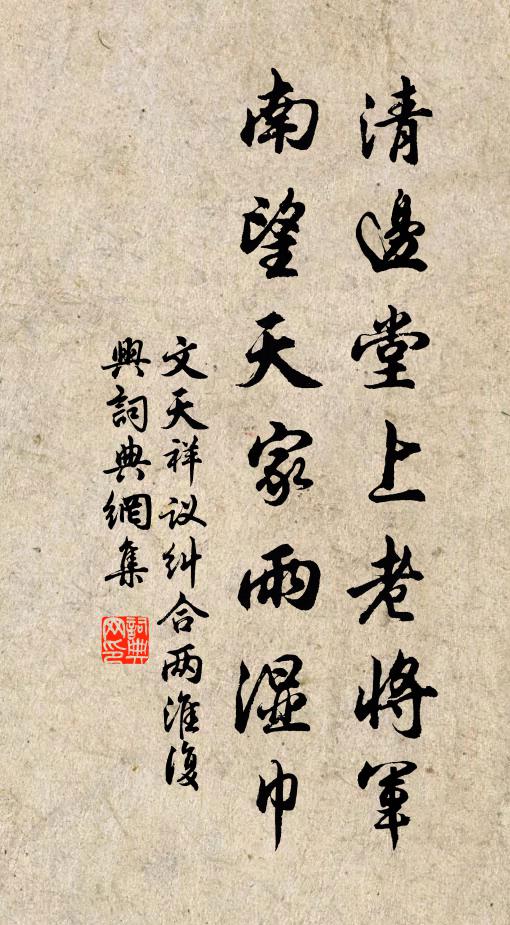 清邊堂上老將軍
南望天家雨濕巾
文天祥议纠合两淮復
興詞典網集
詞典網印